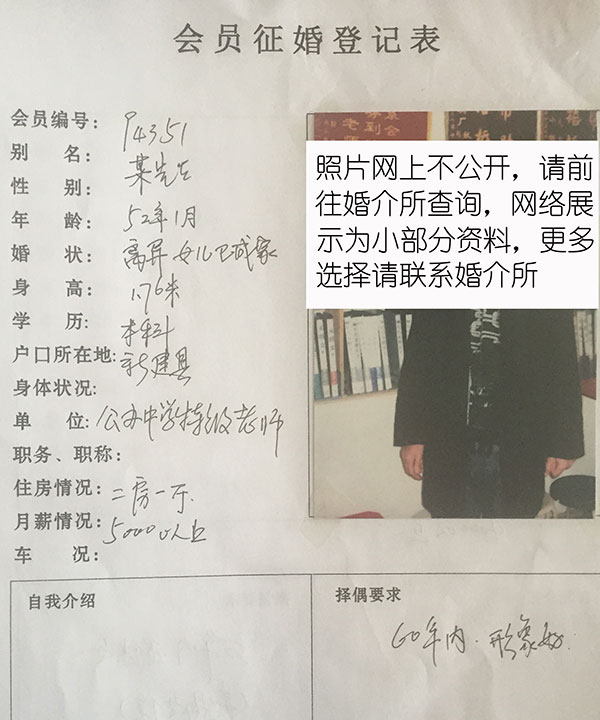 会员征婚登记表
会员编号: 94351
别 名: 某先生
性 别:
年 龄: 52年1月
婚 状: 离异 女儿已成家
身 高: 1.76米
学 历: 本科
户口所在地: 新建县
身体状况:
单 位: 公办中学特级老师
职务、职称:
住房情况: 二房一厅.
月薪情况: 5000以上
车 况:
照片网上不公开，请前
往婚介所查询，网络展
示为小部分资料，更多
选择请联系婚介所
自我介绍
择偶要求
60年内. 形象好.